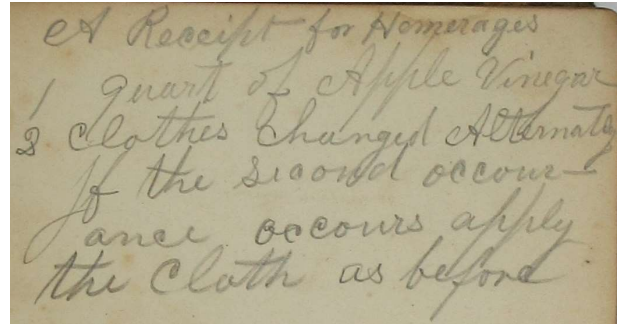 A Receipt for Homerages
1 quart of Apple Vinegar
2 Clothes Changed Alternately
If the Second occour-
ance occours apply
the Cloth as before